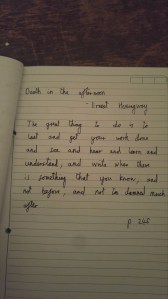 Death in the afternoon
- Ernest Hemingway
The great thing is to do is to
last and get your work done
and see and hear and learn and
understand; and write when there
is something that you know; and
not before; and not too damned much
after.
p. 266